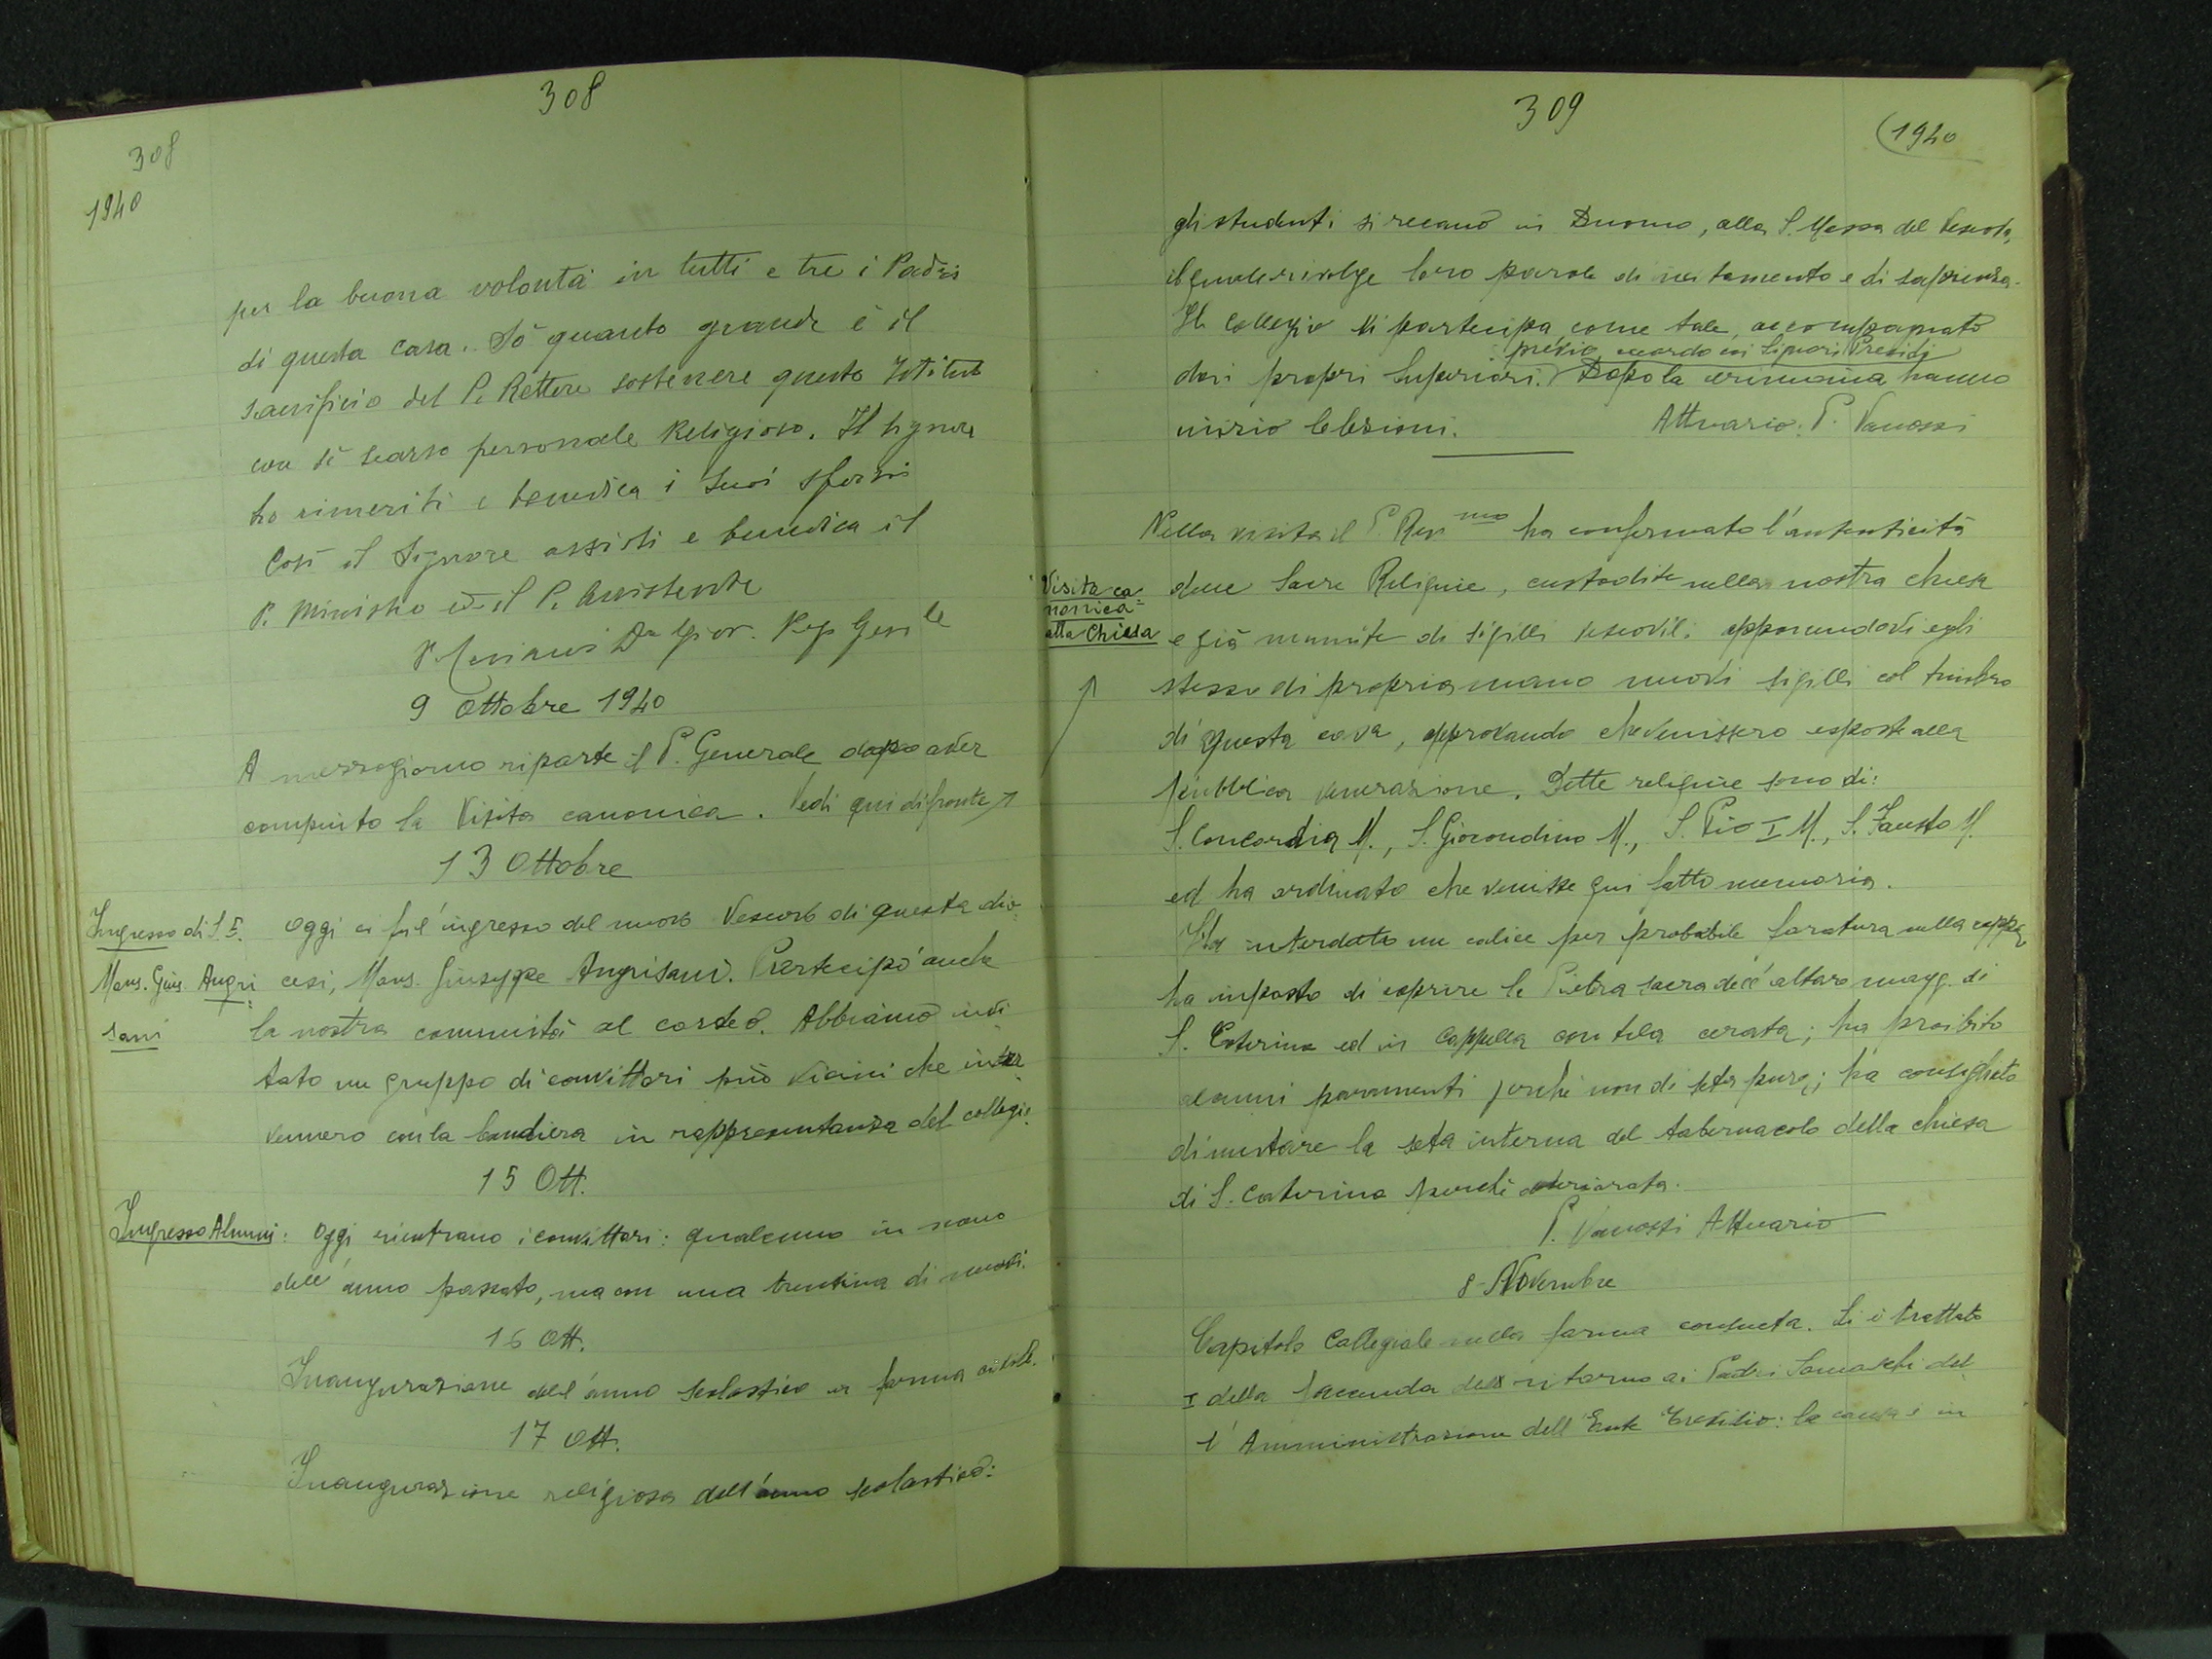 308
308
1940
per la buona volontà in tutti e tre i Padri
di questa casa. So quanto grande è il
sacrificio del P. Rettore sostenere questo Istituto
con sì scarso personale Religioso. Il Signore
lo rimeriti e benedica i suoi sforzi
Così il Signore assisti e benedica il
P. Ministro ed il P. Assistente
P. Dn Giov. Prep Genle
9 Ottobre 1940
A mezzogiorno riparte il P. Generale dopo aver
compiuto la Visita canonica. Vedi qui di fronte ↗
13 Ottobre
Ingresso di S. E. Oggi ci fu l'ingresso del nuovo Vescovo di questa dio=
Mons. Gius. Angri= cesi, Mons. Giuseppe Angrisani. Partecipò anche
sani la nostra communità al corteo. Abbiamo invi
tato un gruppo di convittori più vicini che inter=
vennero con la bandiera in rappresentanza del collegio.
15 Ott.
Ingresso Alunni: Oggi rientrano i convittori: qualcuno in meno
dell'anno passato, ma con una trentina di nuovi.
16 Ott.
Inaugurazione dell'anno scolastico in forma civile.
17 Ott.
Inaugurazione religiosa dell'anno scolastico:
309
1940
gli studenti si recano in Duomo, alla S. Messa del Vescovo,
il quale rivolge loro parole di incitamento e di sapienza.
Il Collegio vi partecipa come tale, accompagnato
previo accordo coi Signori Presidi
dai propri Superiori. Dopo la cerimonia hanno
inizio le lezioni. Attuario: P. Vanossi
Nella visita il P. Rev.mo ha confermato l'autenticità
Visita ca=
nonica
alla Chiesa
delle Sacre Reliquie, custodite nella nostra chiesa
e già munite di sigilli vescovili: apponendovi egli
stesso di propria mano nuovi sigilli col timbro
di questa casa, approvando che venissero esposte alla
pubblica venerazione. Dette reliquie sono di:
S. Concordia M., S. Giocondino M., S. Pio I M., S. Fausto M.
ed ha ordinato che venisse qui fatto memoria.
Ha interdetto un calice per probabile foratura nella coppa,
ha imposto di coprire la Pietra sacra dell'altare magg. di
S. Caterina ed in Cappella con tela cerata; ha proibito
alcuni paramenti perché non di seta pura; ha consigliato
di mutare la seta interna del tabernacolo della chiesa
di S. Caterina perché
P. Vanossi Attuario
8 Novembre
Capitolo Collegiale nella forma consueta. Si è trattato
I della faccenda del ritorno ai Padri Somaschi del
l'Amministrazione dell'Ente Trevisio: la causa è in